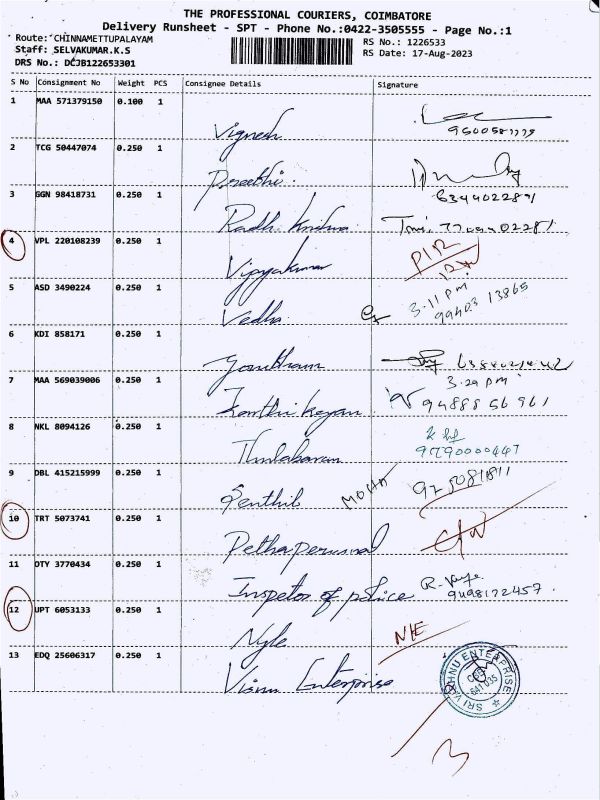 THE PROFESSIONAL COURIERS, COIMBATORE
Delivery Runsheet - SPT - Phone No.:0422-3505555 - Page No.:1
Route: CHINNAMETTUPALAYAM
Staff: SELVAKUMAR.K.S
DRS No.: DCJB122653301
RS No.: 1226533
RS Date: 17-Aug-2023
S No Consignment No Weight PCS Consignee Details Signature
1 MAA 571379150 0.100 1
Vignesh
2 TCG 50447074 0.250 1
Preethi
3 GGN 98418731 0.250 1
Radh Krishna
4 VPL 220108239 0.250 1
Vijayakumar
5 ASD 3490224 0.250 1 3.11 pm
Vedha 99403 13865
6 KDI 858171 0.250 1
Gowtham
7 MAA 569039006 0.250 1 3.29 pm
Karthikeyan 94888 56 961
8 NKL 8094126 0.250 1
Thulabaram 9790000447
9 DBL 415215999 0.250 1
Senthil MOHA
10 TRT 5073741 0.250 1
Pethaperumal
11 OTY 3770434 0.250 1
Inspetor of police 9498172457
12 UPT 6053133 0.250 1
Nyle N/E
13 EDQ 25606317 0.250 1
Visnu Enterprise
SRI VISHNU ENTERPRISE
CBE
641 035